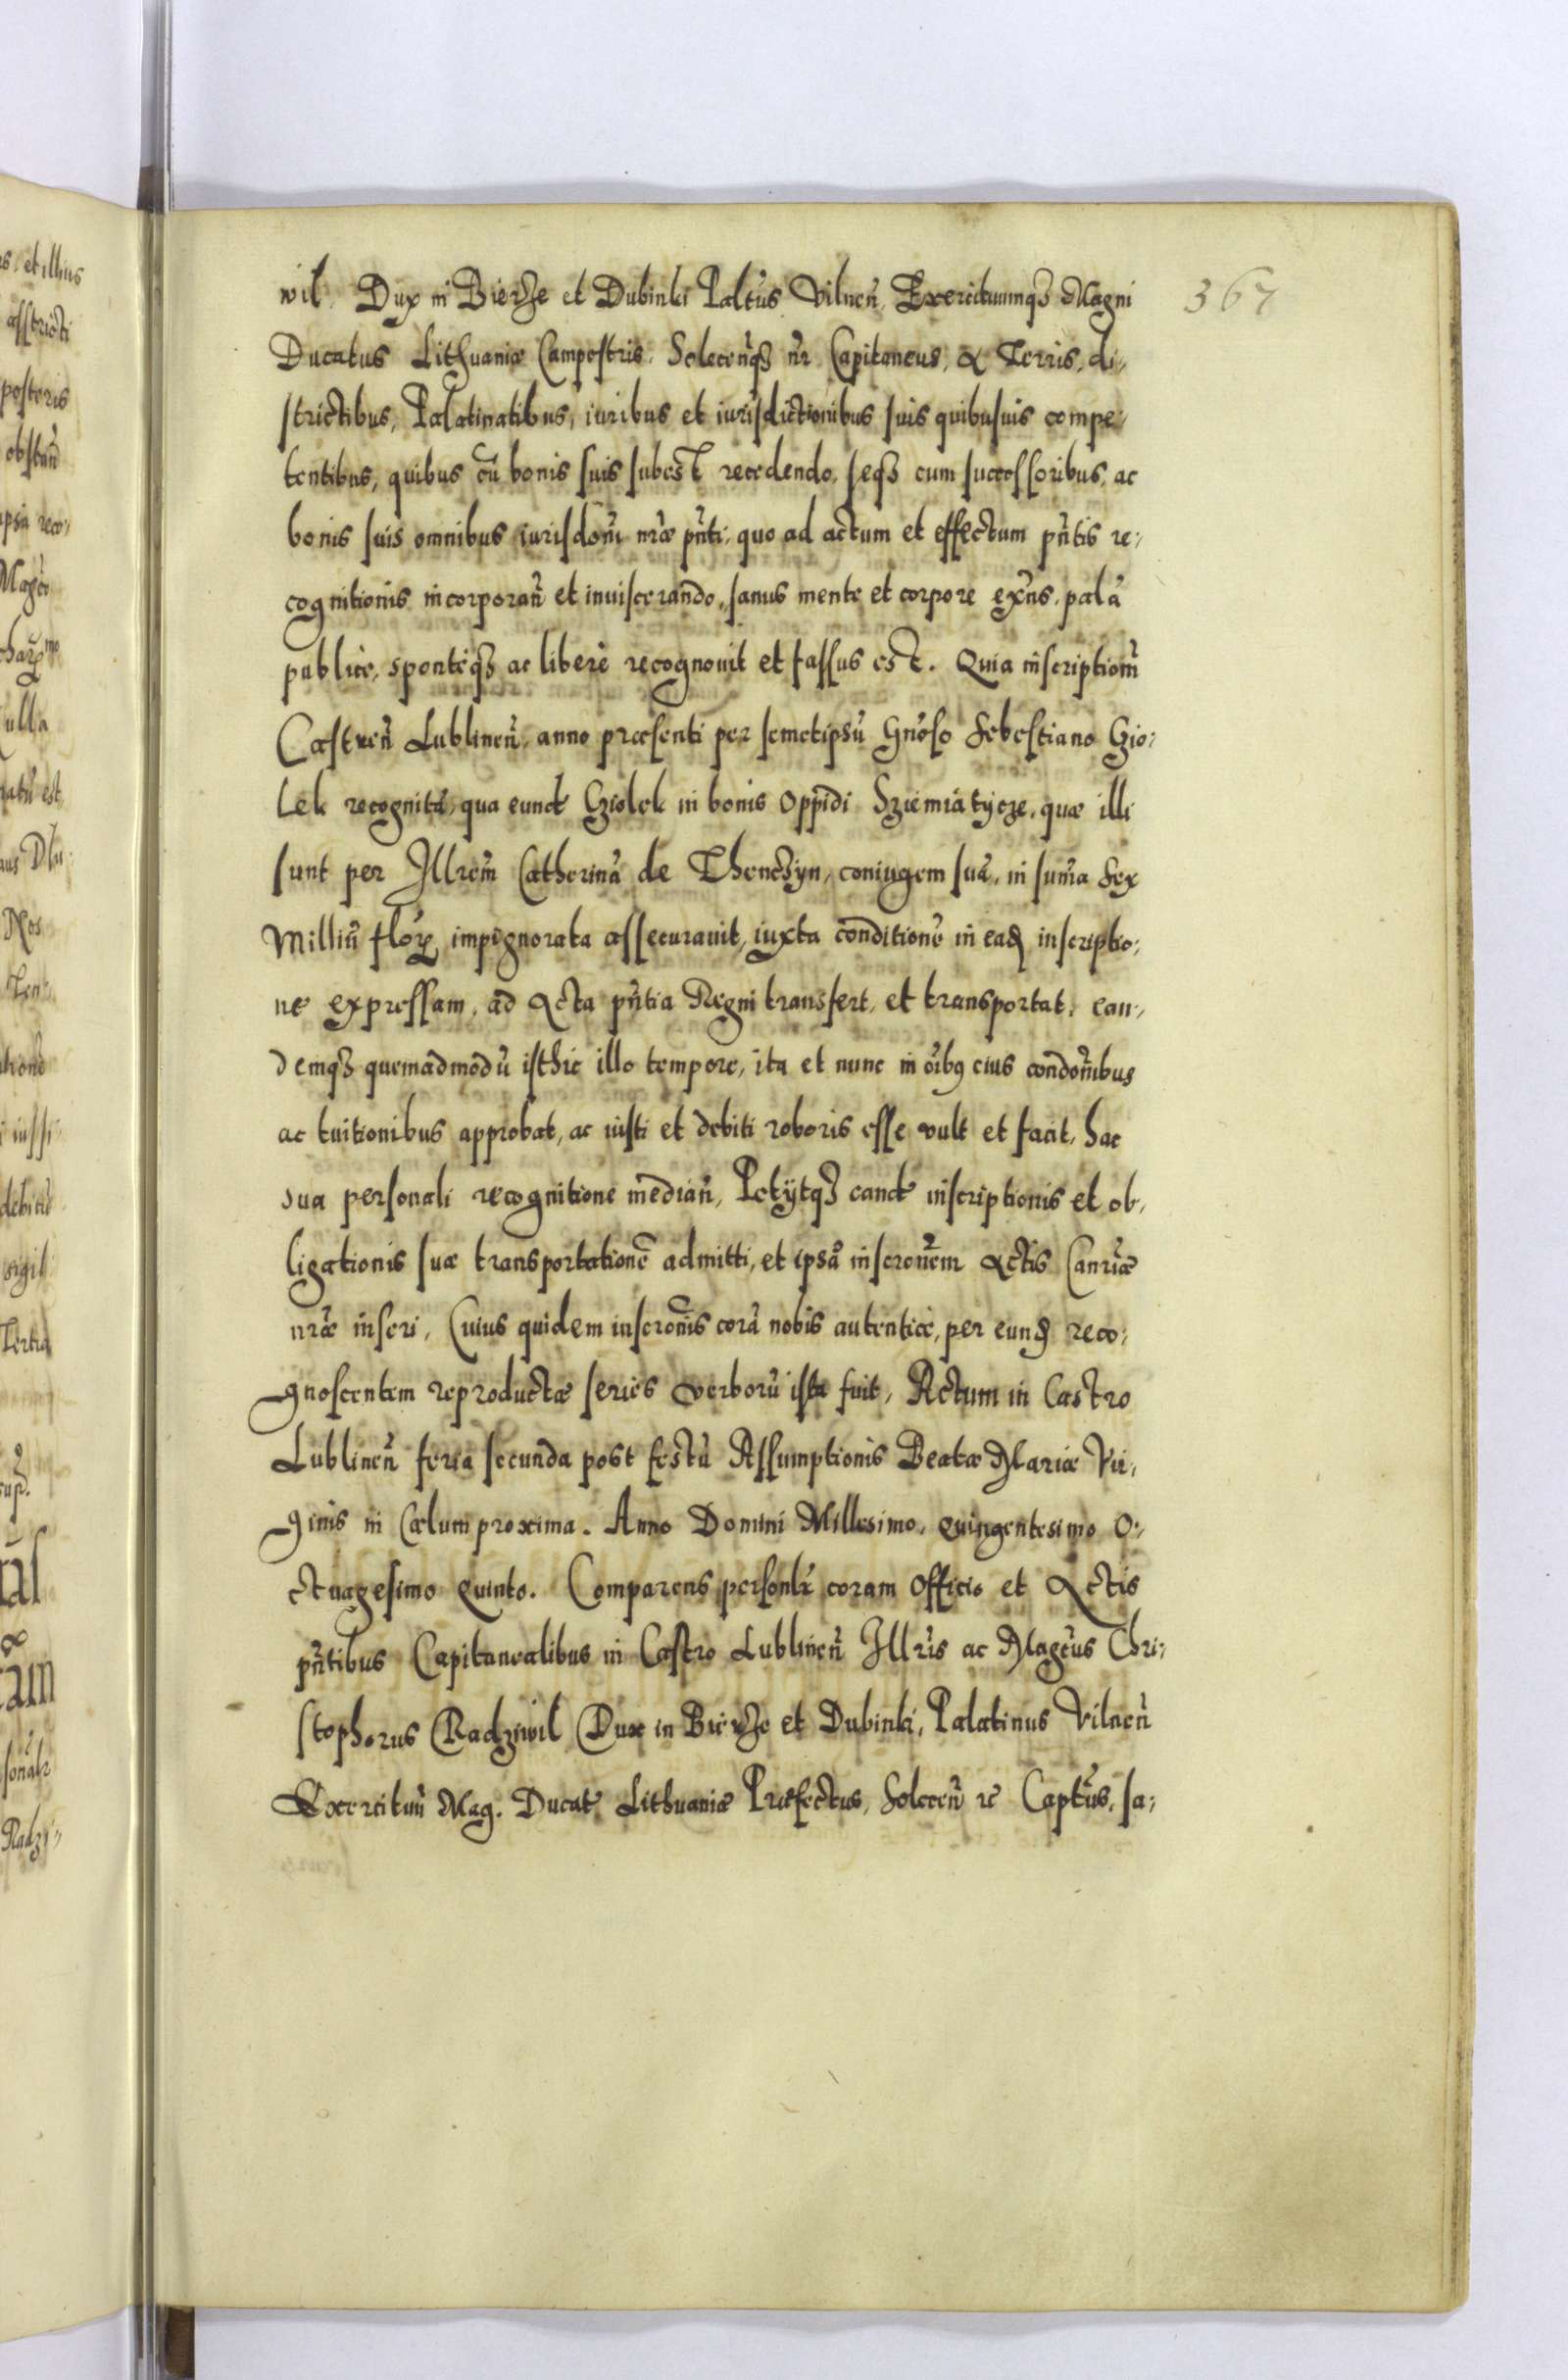 367
wil. Dux in Bierże et Dubinki Paltũs Vilneñ. Exercituumq3 Magni
Ducatus Lithuaniæ Campestris. Solecenq3 nr̃ Capitaneus, a Terris, di-
strictibus, Palatinatibus, iuribus et iurisdictionibus suis quibusuis compe-
tentibus, quibus cũ bonis suis subest recedendo, seq3 cum successoribus, ac
bonis suis omnibus iurisdoñi nr̃æ pñti, quo ad actum et effectum pñtis re-
cognitionis incorporañ et inuiscerando, sanus mente et corpore exñs, palã
publicè, sponteq3 ac liberè recognouit et fassus est. Quia inscriptionẽ
Castreñ Lublineñ, anno præsenti per semetipsũ Gñoso Sebestiano Gio-
lek recognitã, qua eund Giolek in bonis oppidi Sziemiatycze, quæ illi
sunt per Illrem̃ Catherinã de Thenczyn, coniugem suã, in sum̃a sex
Milliũ flor̃ impignorata assecurauit, iuxta conditionẽ in ead inscriptio-
ne expressam, ad Acta pñtia Regni transfert, et transportat, ean-
demq3 quemadmodũ isthic illo tempore, ita et nunc in oĩbus eius condoñibus
ac tuitionibus approbat, ac iusti et debiti roboris esse vult et facit, hac
sua personali recognitione mediañ, Petijtq3 eand inscriptionis et ob-
ligationis suæ transportationẽ admitti, et ipsã inscronẽm Actis Canr̃iæ
nr̃æ inseri, Cuius quidem inscronis corã nobis autenticè, per eund reco-
gnoscentem reproductæ series verborũ ista fuit, Actum in Castro
Lublineñ feria secunda post festũ Assumptionis Beatæ Mariæ Vir-
ginis in Cælum proxima. Anno Domini Millesimo, quingentesimo o-
ctuagesimo quinto. Comparens personlr̃ coram Officio et Actis
pñtibus Capitanealibus in Castro Lublineñ Illr̃is ac Magcũs Chri-
stophorus Radziwil Dux in Bierże et Dubinki, Palatinus Vilneñ
Exercituũ Mag. Ducat Lithuaniæ Præfectus, Soleceñ ꝛc Captũs, sa-